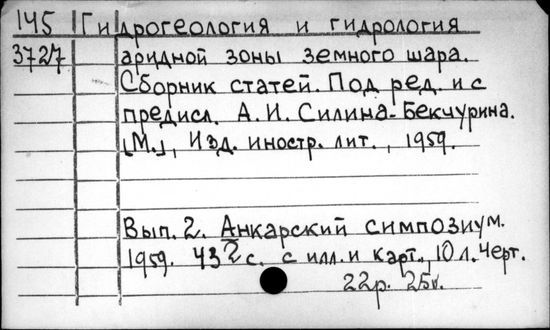 145 Гидрогеология и гидрология
3727 аридной зоны земного шара.
Сборник статей. Под ред. и с
предисл. А. И. Силина-Бекчурина.
[М.], Изд. иностр. лит., 1959.
Вып. 2. Анкарский симпозиум.
1959. 432 с. с илл. и карт., 10 л. черт.
22р. 25к.